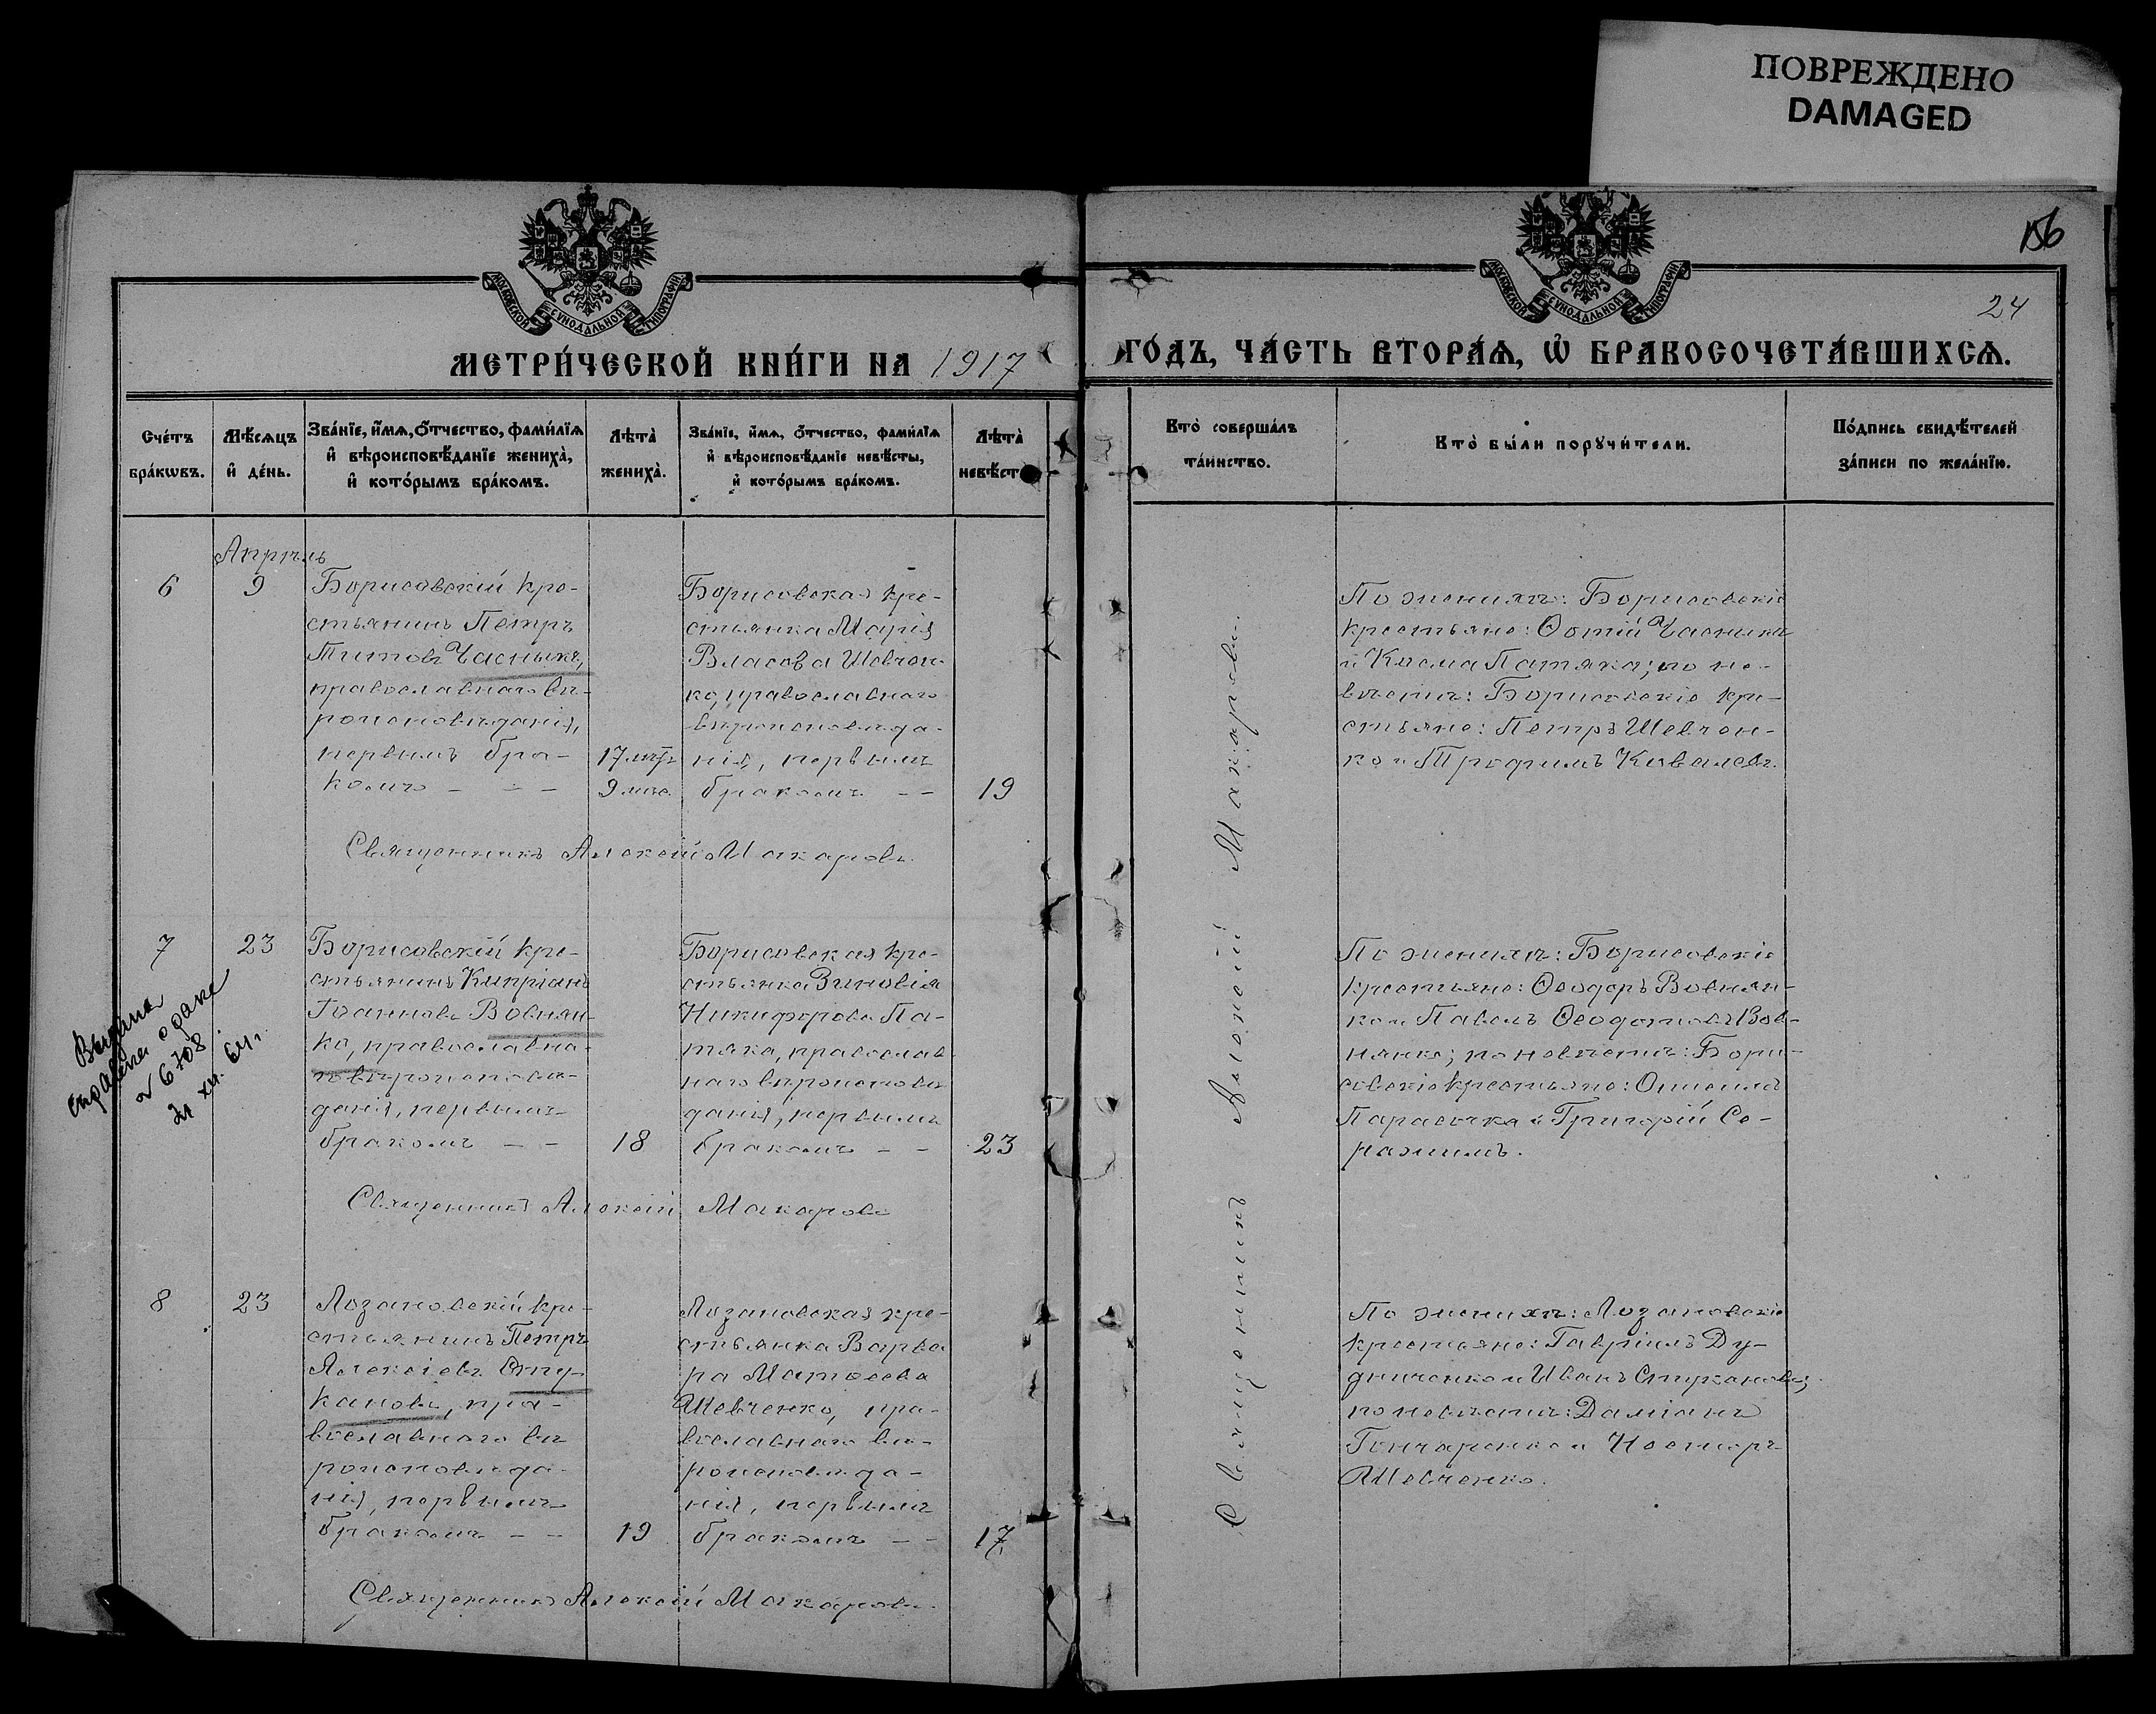 ПОВРЕЖДЕНО
DAMAGED
156
24
МОСКОВСКОЙ СѴНОДАЛЬНОЙ ТИПОГРАФІИ
МОСКОВСКОЙ СѴНОДАЛЬНОЙ ТИПОГРАФІИ
МЕТРИ́ЧЕСКОЙ КНИ́ГИ НА 1917
ГО́ДЪ, ЧА́СТЬ ВТОРА́Ѧ, Ѡ҆ БРАКОСОЧЕТА́ВШИХСѦ.
Сче́тъ
бра́кѡвъ.
Мѣ́сѧцъ
и҆ де́нь.
Зва́нїе, и҆́мѧ, ѻ҆́тчество, фами́лїѧ
и҆ вѣроисповѣ́данїе жениха̀,
и҆ кото́рымъ бра́комъ.
Лѣта̀
жениха̀.
Зва́нїе, и҆́мѧ, ѻ҆́тчество, фами́лїѧ
и҆ вѣроисповѣ́данїе невѣ́сты,
и҆ кото́рымъ бра́комъ.
Лѣта̀
невѣ́ст
Кто̀ соверша́лъ
та́инство.
Кто̀ бы́ли порꙋчи́тели.
По́дпись свидѣ́телей
за́писи по жела́нїю.
Апрѣль
6
9
Борисовскій кре-
стьянинъ Петръ
Титовъ Часныкъ,
православнаго вѣ-
роисповѣданія,
первымъ бра-
комъ - - -
17 лѣтъ
9 мѣс.
Борисовская кре-
стьянка Марія
Власова Шевчен-
ко, православнаго
вѣроисповѣда-
нія, первымъ
бракомъ - -
19
Священникъ Алексій Макаровъ.
По женихѣ: Борисовскіе
крестьяне: Ѳотій Часныкъ
и Косма Патяка; по не-
вѣстѣ: Борисовскіе кре-
стьяне: Петръ Шевчен-
ко и Трофимъ Ковалевъ.
7
23
Борисовскій кре-
стьянинъ Кипріанъ
Іоанновъ Вовнян-
ко, православна-
го вѣроисповѣ-
данія, первымъ
бракомъ - -
18
Борисовская кре-
стьянка Зиновія
Никифорова Па-
тяка, православ-
наго вѣроисповѣ-
данія, первымъ
бракомъ - -
23
Священникъ Алексій Макаровъ
По женихѣ: Борисовскіе
крестьяне: Ѳеодоръ Вовнян-
ко и Павелъ Ѳеодотовъ Вов-
нянко; по невѣстѣ: Бори-
совскіе крестьяне:
Парасочка и Григорій Се-
ражимъ.
Выдана
справка о браке
N 6708
21 XII. 64 г.
8
23
Лозановскій кре-
стьянинъ Петръ
Алексіевъ Сту-
кановъ, пра-
вославнаго вѣ
роисповѣда-
нія, первымъ
бракомъ - -
19
Лозановская кре-
стьянка Варва
ра Матѳеева
Шевченко, пра-
вославнаго вѣ-
роисповѣда-
нія, первымъ
бракомъ - -
17
Священникъ Алексій Макаровъ.
По женихѣ: Лозановскіе
крестьяне: Гавріилъ Ду-
дниченко и Иванъ Стукановъ;
по невѣстѣ: Даміанъ
Гончаренко и Несторъ
Шевченко.
Священникъ Алексій Макаровъ.